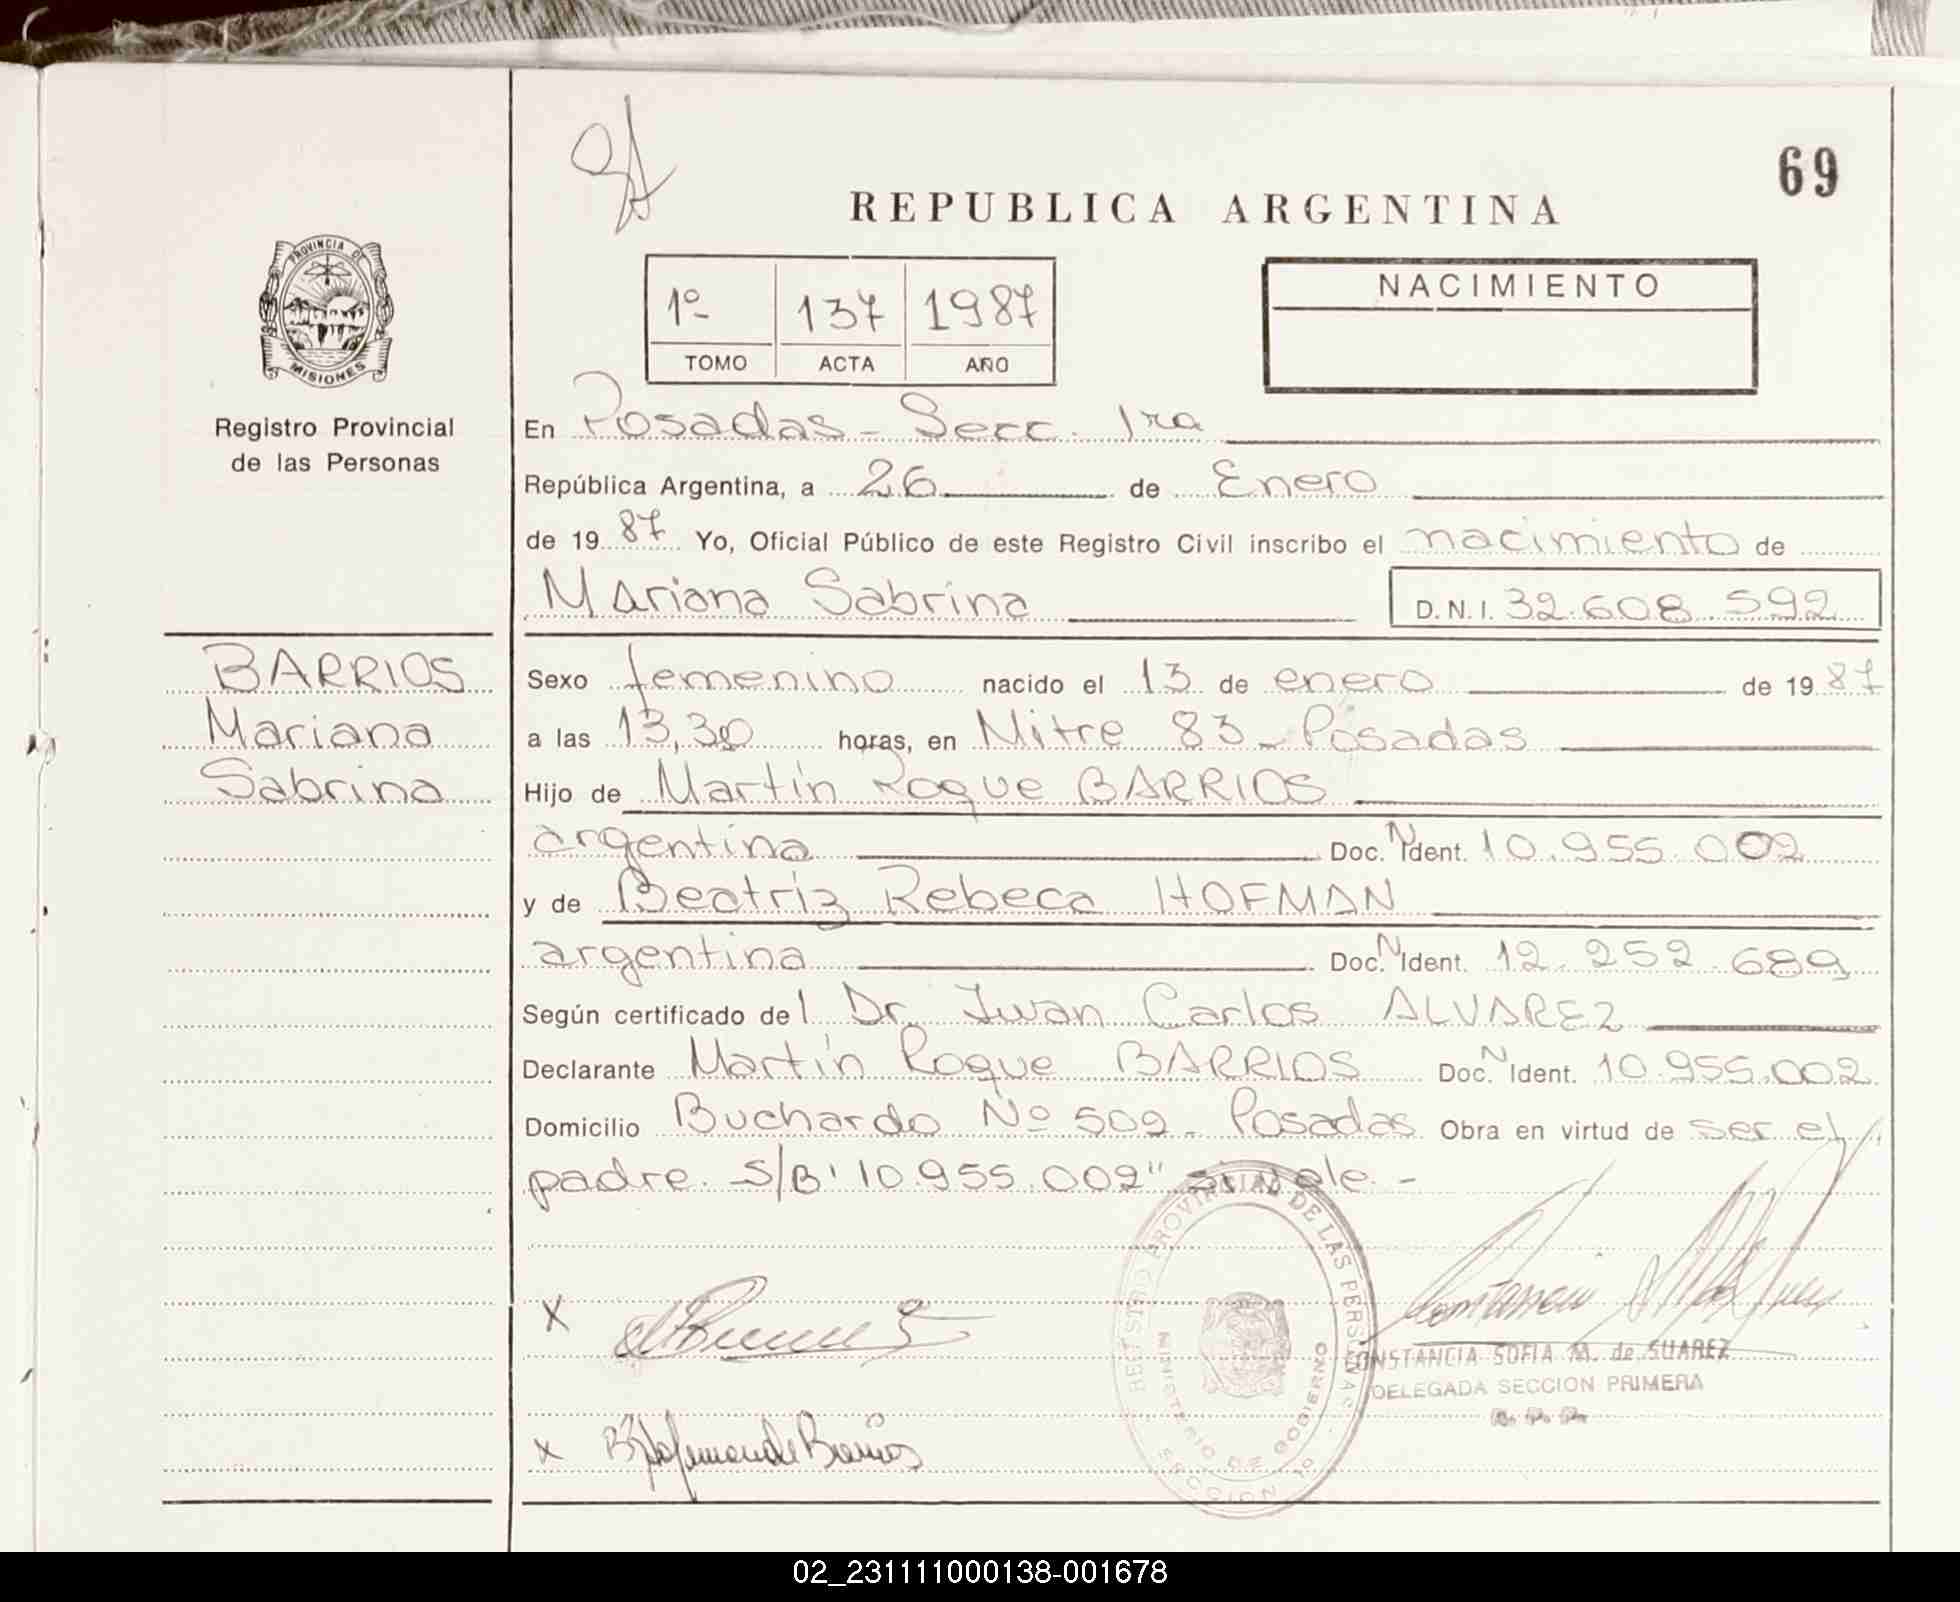 69
REPUBLICA ARGENTINA
PROVINCIA DE
MISIONES
Registro Provincial
de las Personas
1º 137 1987
TOMO ACTA AÑO
NACIMIENTO
En Posadas - Secc. 1ra
República Argentina, a 26 de Enero
de 1987 Yo, Oficial Público de este Registro Civil inscribo el nacimiento de
Mariana Sabrina D.N.I. 32.608.592
BARRIOS
Mariana
Sabrina
Sexo femenino nacido el 13 de enero de 1987
a las 13,30 horas, en Mitre 83 - Posadas
Hijo de Martín Roque BARRIOS
argentina Doc. N Ident. 10.955.002
y de Beatriz Rebeca HOFMAN
argentina Doc. N Ident. 12.252.689
Según certificado del Dr. Juan Carlos ALVAREZ
Declarante Martín Roque BARRIOS Doc. N Ident. 10.955.002
Domicilio Buchardo Nº 509 - Posadas Obra en virtud de ser el
padre. S/B "10.955.002" si vale. -
REGISTRO PROVINCIAL DE LAS PERSONAS
MINISTERIO DE GOBIERNO
SECCION 1º
X
X B. Hofman de Barrios
CONSTANCIA SOFIA M. de SUAREZ
DELEGADA SECCION PRIMERA
R. P. P.
02_231111000138-001678